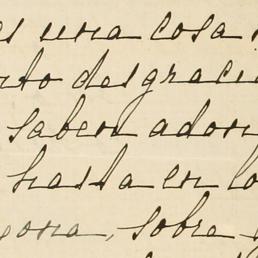 es una cosa
desgracia
saben adon
hasta en lo
sobre